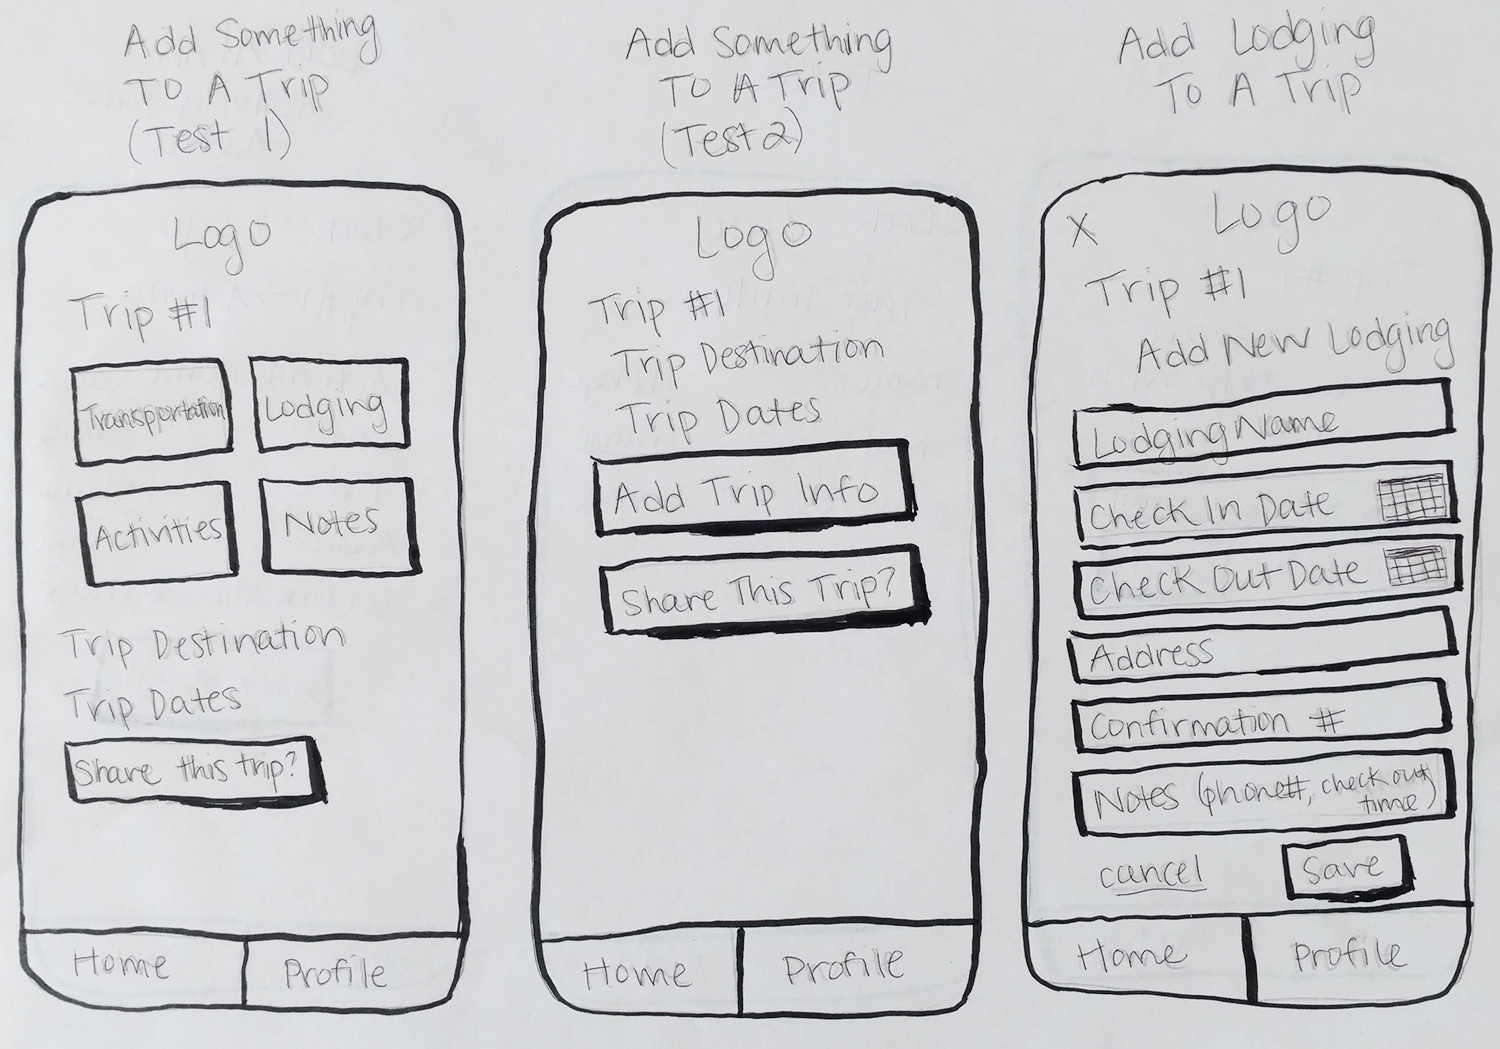 Add Something
To A Trip
(Test 1)
Logo
Trip #1
Transpportation
Lodging
Activities
Notes
Trip Destination
Trip Dates
Share this trip?
Home
Profile
Add Something
To A Trip
(Test 2)
Logo
Trip #1
Trip Destination
Trip Dates
Add Trip Info
Share This Trip?
Home
Profile
Add Lodging
To A Trip
X
Logo
Trip #1
Add New Lodging
Lodging Name
Check In Date
Check Out Date
Address
Confirmation #
Notes (phone#, check out
time)
cancel
Save
Home
Profile